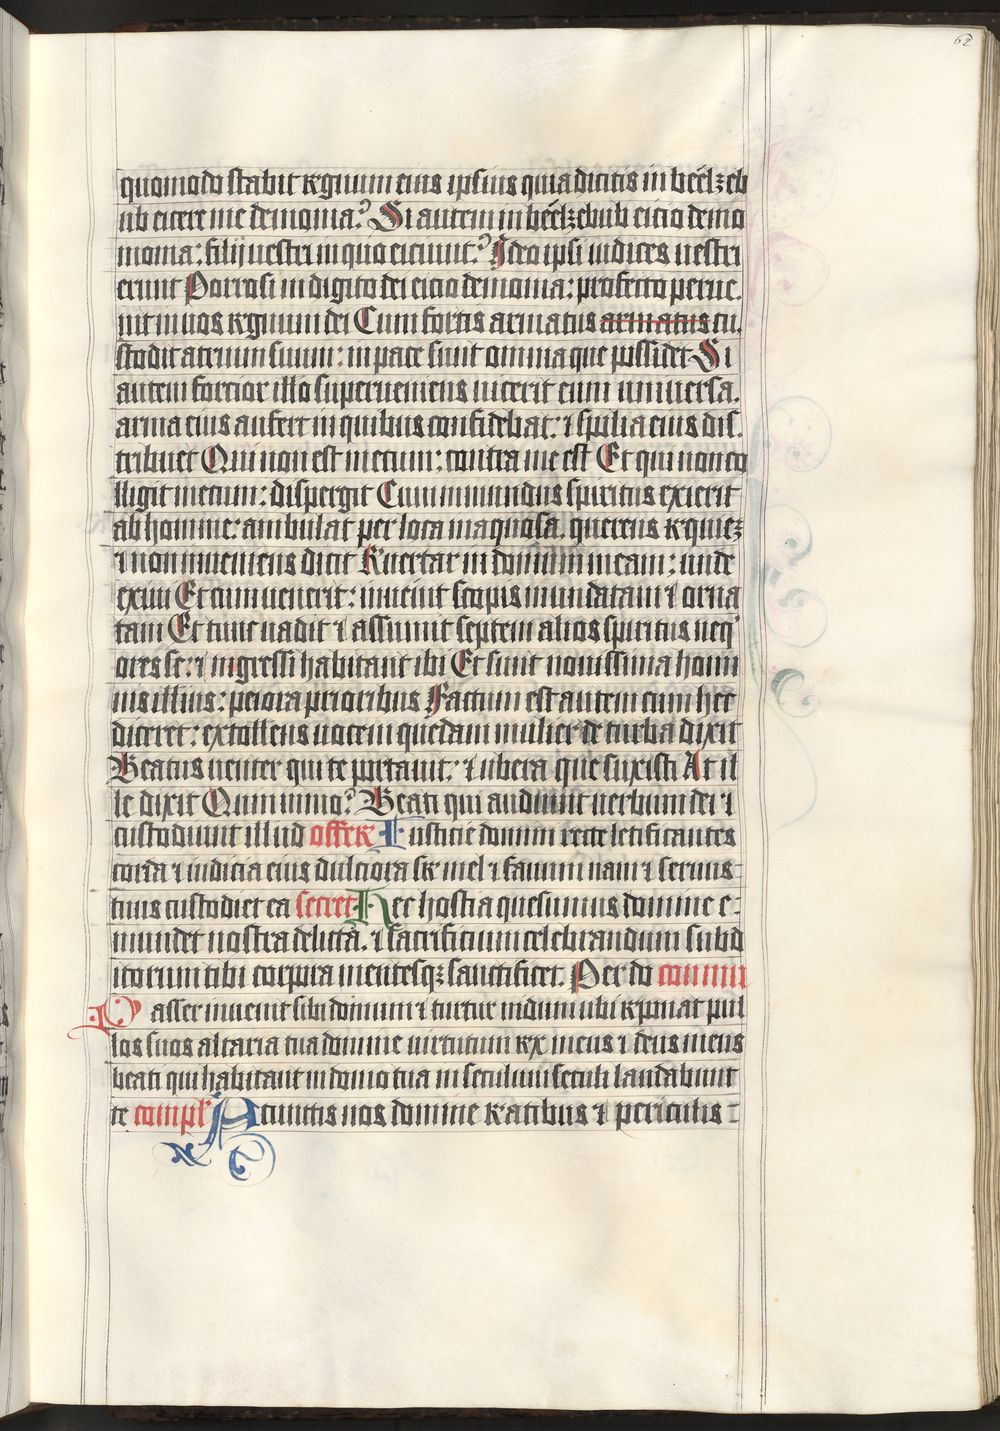 62
quomodo stabit regnum eius ipsius quia dicitis in beelzeb
ub eicere me demonia? Si autem in beelzebub eicio demo
monia: filij uestri in quo eiciunt? Ideo ipsi iudices uestri
erunt Porro si in digito dei eicio demonia: profecto perue.
nit in uos regnum dei Cum fortis armatus armatus cu.
stodit atrium suum: in pace sunt omnia que possidet Si
autem fortior illo superueniens uicerit eum uniuersa.
arma eius aufert in quibus confidebat: ⁊ spolia eius dis.
tribuet Qui non est mecum: contra me est Et qui non co
lligit mecum: dispergit Cum inmundus spiritus exierit
ab homine: ambulat per loca inaquosa. querens requiez
⁊ non inueniens dicit Reuertar in domum meam: unde
exiui Et cum uenerit: inuenit scopis mundatam ⁊ orna
tam Et tunc uadit ⁊ assumit septem alios spiritus neq
ores se: ⁊ ingressi habitant ibi Et sunt nouissima homi
nis illius: peiora prioribus Factum est autem cum hec
diceret: extollens uocem quedam mulier de turba dixit
Beatus uenter qui te portauit: ⁊ ubera que suxisti At il
le dixit Quinimmo? Beati qui audiunt uerbum dei ⁊
custodiunt illud offere Iusticie domini recte letificantes
corda ⁊ iudicia eius dulciora sr mel ⁊ fauum nam ⁊ seruus
tuus custodiet ea secret Hec hostia quesumus domine e:
mundet nostra delicta. ⁊ sacrificium celebrandum subd
itorum tibi corpora mentesqz sanctificet. Per do commu
Passer inuenit sibi domum ⁊ turtur nidum ubi reponat pul
los suos altaria tua domine uirtutum rex meus ⁊ deus meus
beati qui habitant in domo tua in seculum seculi laudabunt
te compl Acunctis nos domine reatibus ⁊ periculis :